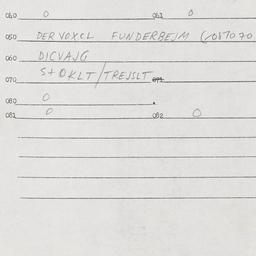 040 0 041 0
050 DERVOXCL FUNDERBEJM (/OSTO 70
060 DICVAJG
070 S+OKLT/TREJSLT 071
080 0
081 0 082 0